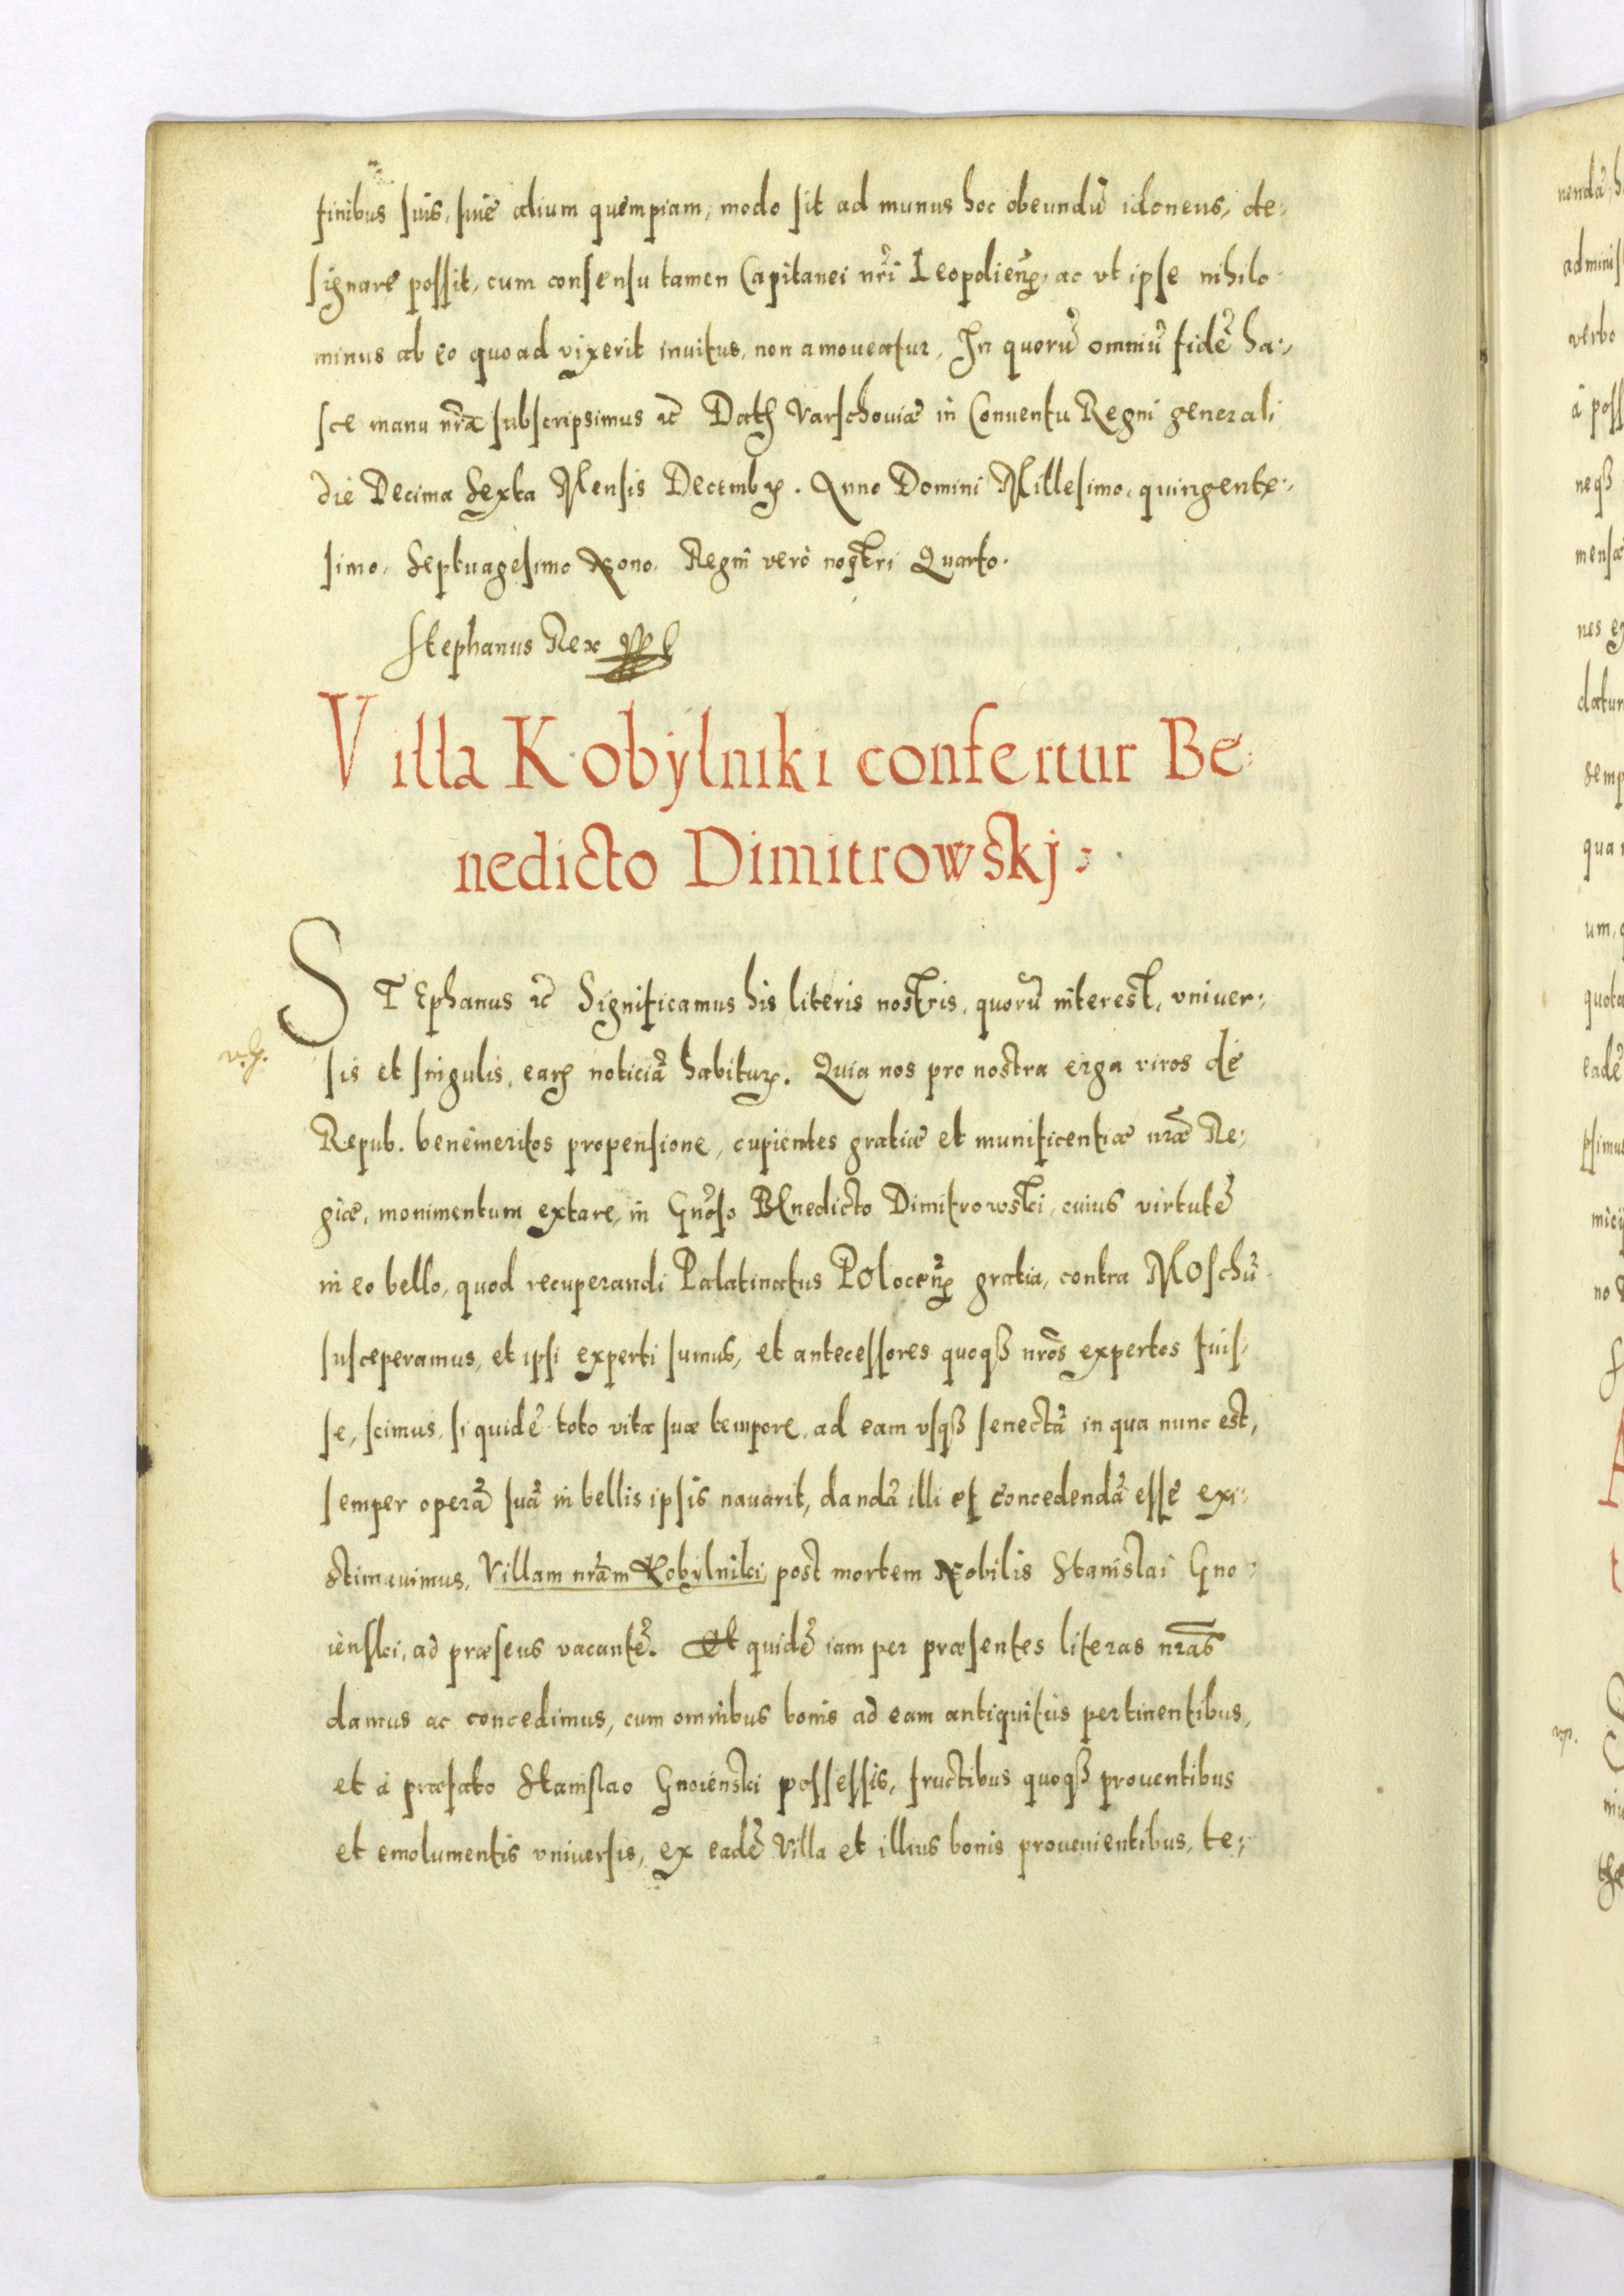 finibus suis, siue alium quempiam, modo sit ad munus hoc obeundũ idoneus, de:
signare possit, cum consensu tamen Capitanei nr̃i Leopolieñ, ac vt ipse nihilo
minus ab eo quoad vixerit inuitus, non amoueatur, In quorũ omniũ fidẽ ha:
sce manu nr̃a subscripsimus ꝛc̃ Datꝫ Varschouiæ in Conuentu Regni generali
die Decima Sexta Mensis Decembꝝ. Anno Domini Millesimo, quingente:
simo, Septuagesimo Nono, Regni verò nostri Quarto.
Stephanus Rex
Villa Kobylniki confertur Be:
nedicto Dimitrowskj:
STEphanus ꝛc̃ Significamus his literis nostris, quorũ interest, vniuer:
sis et singulis, earꝫ noticiã habiturꝝ. Quia nos pro nostra erga viros dé
Repub. benèmeritos propensione, cupientes gratiæ et munificentiæ nr̃æ Re:
giæ, monimentum extare, in Gñoso BEnedicto Dimitrowski, cuius virtutẽ
in eo bello, quod recuperandi Palatinatus POloceñ gratia, contra MOschũ
susceperamus, et ipsi experti sumus, et antecessores quoqꝫ nr̃os expertos fuis:
se, scimus, siquidẽ toto vitæ suæ tempore, ad eam vsqꝫ senectã in qua nunc est,
semper operã suã in bellis ipsis nauarit, dandã illi et concedendã esse exi:
stimauimus, Villam nr̃am Kobylniki, post mortem Nobilis Stanislai Gno:
iènski, ad præsens vacantẽ. Et quidẽ iam per præsentes literas nr̃as
damus ac concedimus, cum omnibus bonis ad eam antiquitùs pertinentibus,
et à præfato Stanislao Gnoiènski possessis, fructibus quoqꝫ prouentibus
et emolumentis vniuersis, ex eadẽ Villa et illius bonis prouenientibus, te: